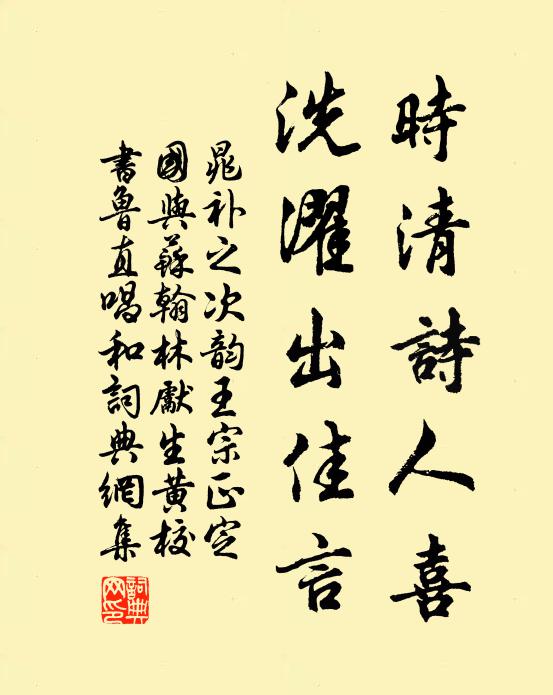 時清詩人喜
洗濯出佳言
晁补之次韵王宗正定
國與蘇翰林獻生黄校
書魯直唱和詞典網集
詞典